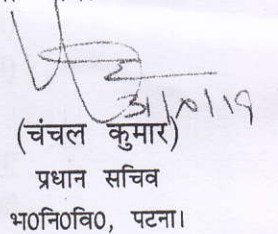 (चंचल कुमार)
प्रधान सचिव
भ0नि0वि0, पटना।